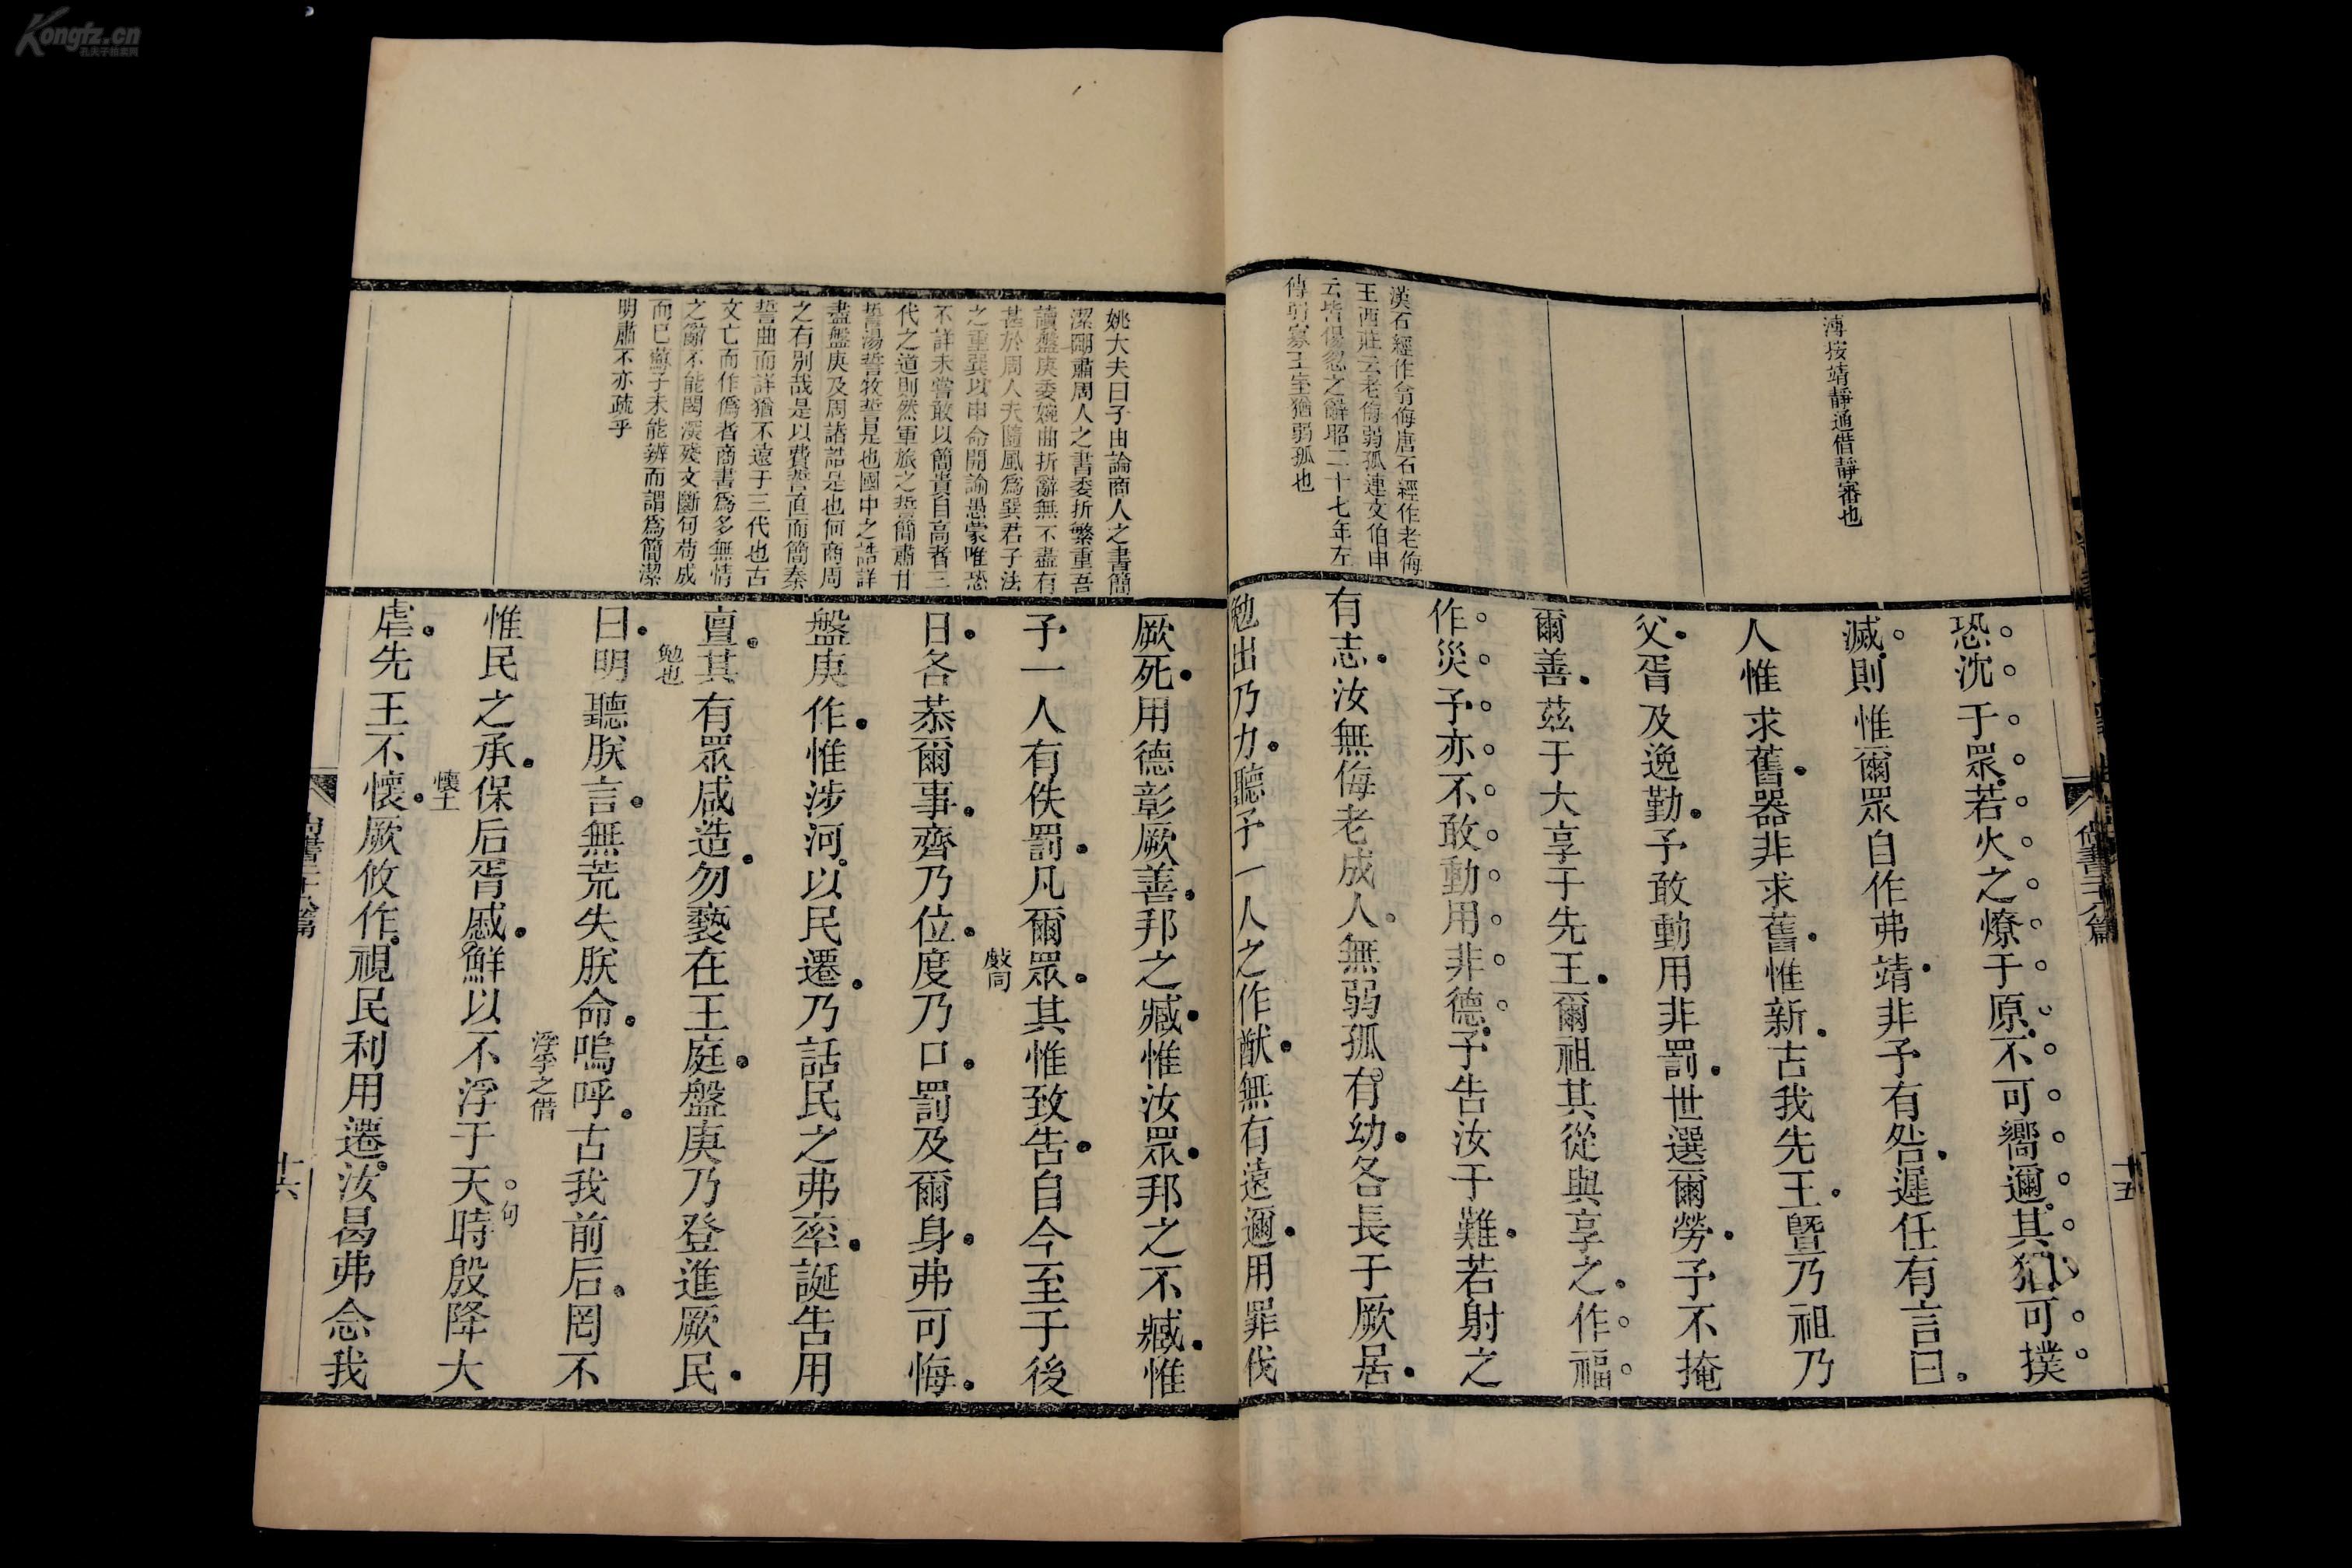 溥按靖靜通借靜審也
漢石經作翕侮唐石經作老侮
王西莊云老侮弱孤連文伯申
云皆傷忽之辭昭二十七年左
傳弱寡王室猶弱孤也
恐沈于眾若火之燎于原不可嚮邇其猶可撲
滅則惟爾眾自作弗靖非予有咎遲任有言曰
人惟求舊器非求舊惟新古我先王暨乃祖乃
父胥及逸勤予敢動用非罰世選爾勞予不掩
爾善茲予大享于先王爾祖其從與享之作福
作災予亦不敢動用非德予告汝于難若射之
有志汝無侮老成人無弱孤有幼各長于厥居
勉出乃力聽予一人之作猷無有遠邇用罪伐
尚書二十八篇
十五
姚大夫曰子由論商人之書簡
潔剛肅周人之書委折繁重吾
讀盤庚委婉曲折辭無不盡有
甚於周人夫隨風為巽君子法
之重巽以申命開諭愚蒙唯恐
不詳未嘗敢以簡貴自高者三
代之道則然軍旅之誓簡肅甘
誓湯誓牧誓是也國中之誥詳
盡盤庚及周諸誥是也何商周
之有別哉是以費誓直而簡秦
誓曲而詳猶不遠于三代也古
文亡而作偽者商書為多無情
之辭不能閎深殘文斷句苟成
而已蘇子未能辨而謂為簡潔
明肅不亦疏乎
厥死用德彰厥善邦之臧惟汝眾邦之不臧惟
予一人有佚罰凡爾眾其惟致告自今至于後
日各恭爾事齊乃位度乃口罰及爾身弗可悔
敱同
盤庚作惟涉河以民遷乃話民之弗率誕告用
亶其有眾咸造勿褻在王庭盤庚乃登進厥民
勉也
曰明聽朕言無荒失朕命嗚呼古我前后罔不
浮孚之借
惟民之承保后胥慼鮮以不浮于天時殷降大
句
虐先王不懷厥攸作視民利用遷汝曷弗念我
懷土
尚書二十八篇
十六
Kongfz.cn